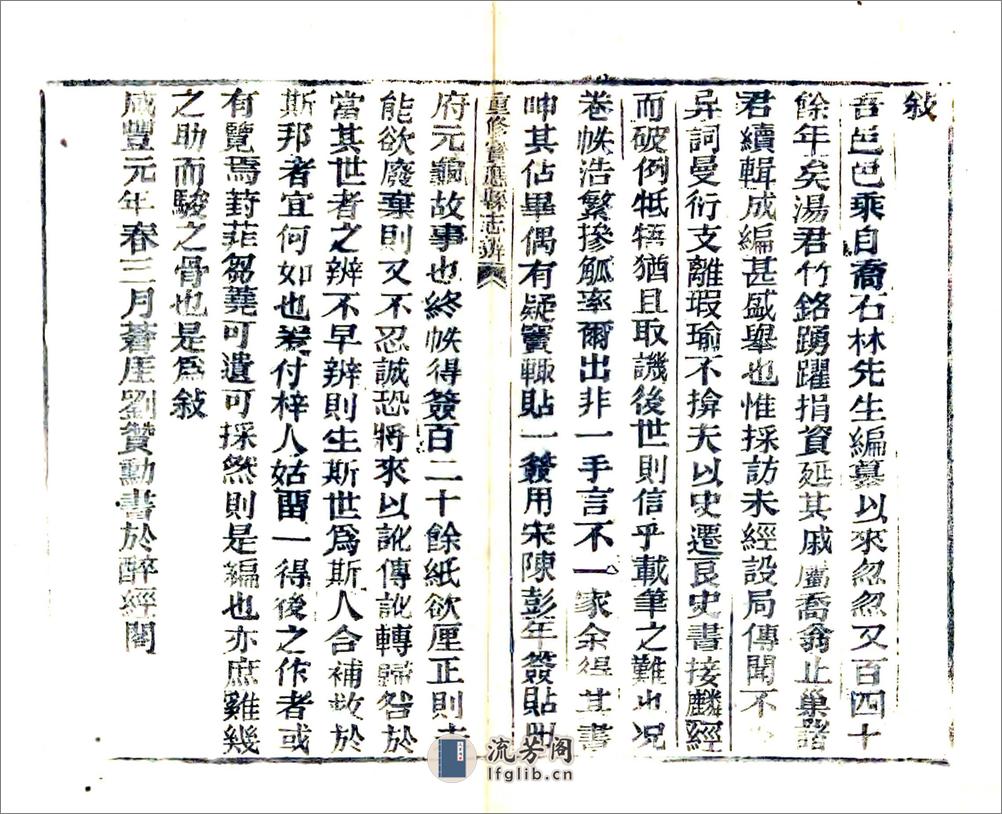 敍
吾邑邑乘自喬石林先生編纂以來忽忽又百四十
餘年矣湯君竹銘踴躍捐資延其戚属喬翁止巢諸
君續輯成編甚盛舉也惟採訪未經設局傳聞不
异詞曼衍支離瑕瑜不揜夫以史遷良史書接麟經
而破倒牴牾猶且取譏後世則信乎載筆之難也况
卷帙浩繁摻觚率爾出非一手言不一家余得其書
呻其佔畢偶有疑竇輒貼一簽用宋陳彭年簽貼册
重修寶應縣志辨
府元龜故事也終帙得簽百二十餘紙欲厘正則
能欲廢棄則又不忍誠恐將來以訛傳訛轉歸咎於
當其世者之辨不早辨則生斯世爲斯人合補救於
斯邦者宜何如也爰付梓人姑畱一得後之作者或
有覽焉葑菲芻蕘可遺可採然則是編也亦庶雞幾
之助而駿之骨也是爲敍
咸豐元年春三月蒼厓劉贊勳書於醉經閣
流芳阁
lfglib.cn